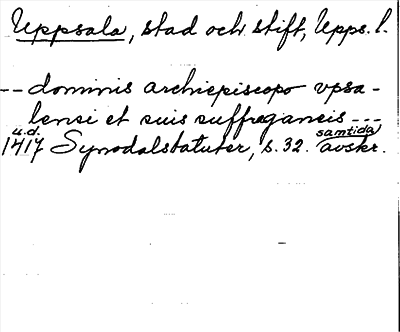 Uppsala, stad och stift, Upps. l.
-- dominis archiepiscopo vpsa-
lensi et suis suffraganeis ---
u.d.
1417 Synodalstatuter, s. 32. samtida avskr.